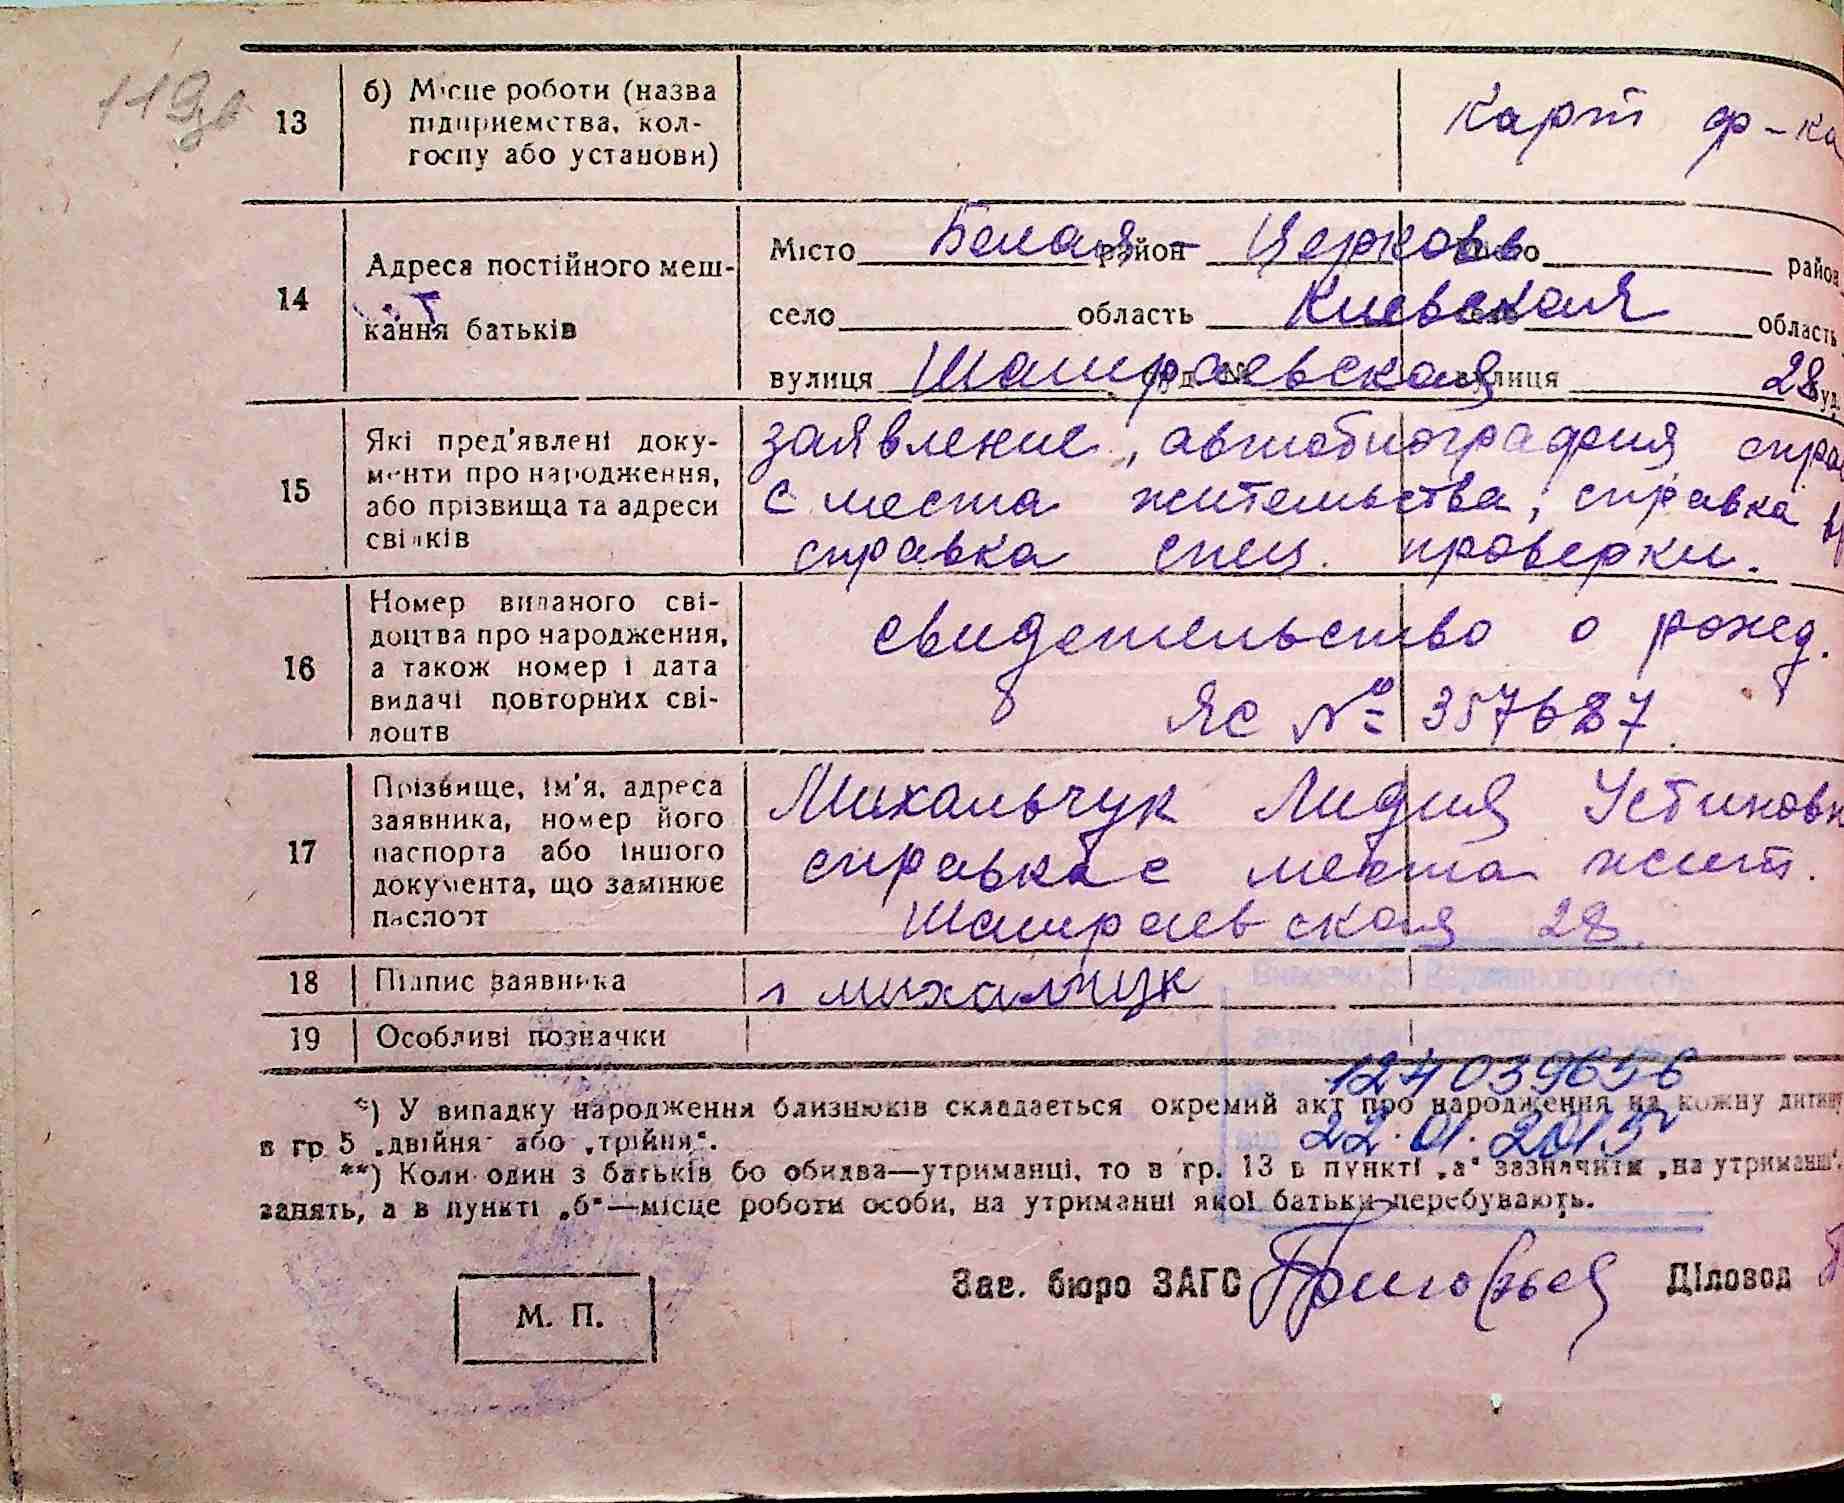 119
13 б) Місце роботи (назва підприємства, колгоспу або установи) Карт ф-ка
14 Адреса постійного мешкання батьків
Місто Белая район - Церковь Місто район
село область Киевская село область
вулиця Шамраевская буд. № вулиця 28 уд.
15 Які пред'явлені документи про народження, або прізвища та адреси свідків
заявление, автобиография, спра
с места жительства, справка в
справка спец. проверки.
16 Номер виданого свідоцтва про народження, а також номер і дата видачі повторних свідоцтв
свидетельство о рожд.
ЯС № 357687
17 Прізвище, ім'я, адреса заявника, номер його паспорта або іншого документа, що замінює паспорт
Михальчук Лидия Устиновн
справка с места жит.
Шамраевская 28.
18 Підпис заявника михалчук
19 Особливі позначки
124039656
*) У випадку народження близнюків складається окремий акт про народження на кожну дитину
в гр. 5 „двійня" або „трійня".
22.01.2015
**) Коли один з батьків бо обидва—утриманці, то в гр. 13 в пункті „а" зазначити „на утриманні",
занять, а в пункті „б"—місце роботи особи, на утриманні якої батьки перебувають.
Зав. бюро ЗАГС Григорьев Діловод
М. П.